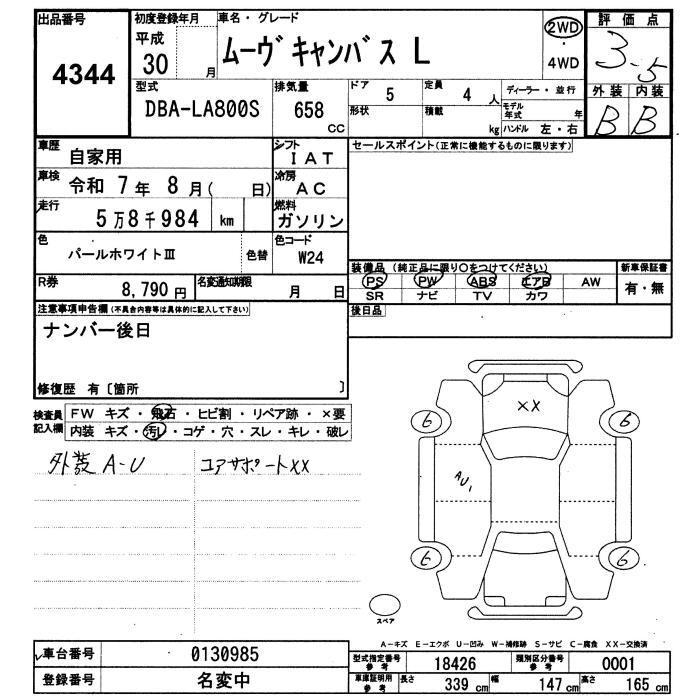 出品番号
4344
初度登録年月
平成
30 月
車名・グレード
ムーヴキャンバス L
2WD
・
4WD
評価点
3.5
外装 内装
B B
型式
DBA-LA800S
排気量
658
CC
ドア 5
形状
定員 4 人
積載 kg
ディーラー・並行
モデル年式 年
ハンドル 左・右
車歴
自家用
シフト
IAT
車検
令和 7年 8月( 日)
冷房
AC
走行
5万8千984 km
燃料
ガソリン
色
パールホワイトⅢ
色替
色コード
W24
R券
8,790 円
名変通知期限
月 日
セールスポイント(正常に機能するものに限ります)
装備品 (純正品に限り○をつけてください)
PS PW ABS エアB AW
SR ナビ TV カワ
新車保証書
有・無
後日品
注意事項申告欄(不具合内容等は具体的に記入して下さい)
ナンバー後日
修復歴 有〔箇所 〕
検査員
記入欄
FW キズ・飛石・ヒビ割・リペア跡・×要
内装 キズ・汚レ・コゲ・穴・スレ・キレ・破レ
外装 A-U
コアサポートXX
XX
6 6
AU1
6 6
スペア
A-キズ E-エクボ U-凹み W-補修跡 S-サビ C-腐食 XX-交換済
車台番号
0130985
登録番号
名変中
型式指定番号
参考
18426
類別区分番号
参考
0001
車庫証明用
参考
長さ 339 cm
幅 147 cm
高さ 165 cm